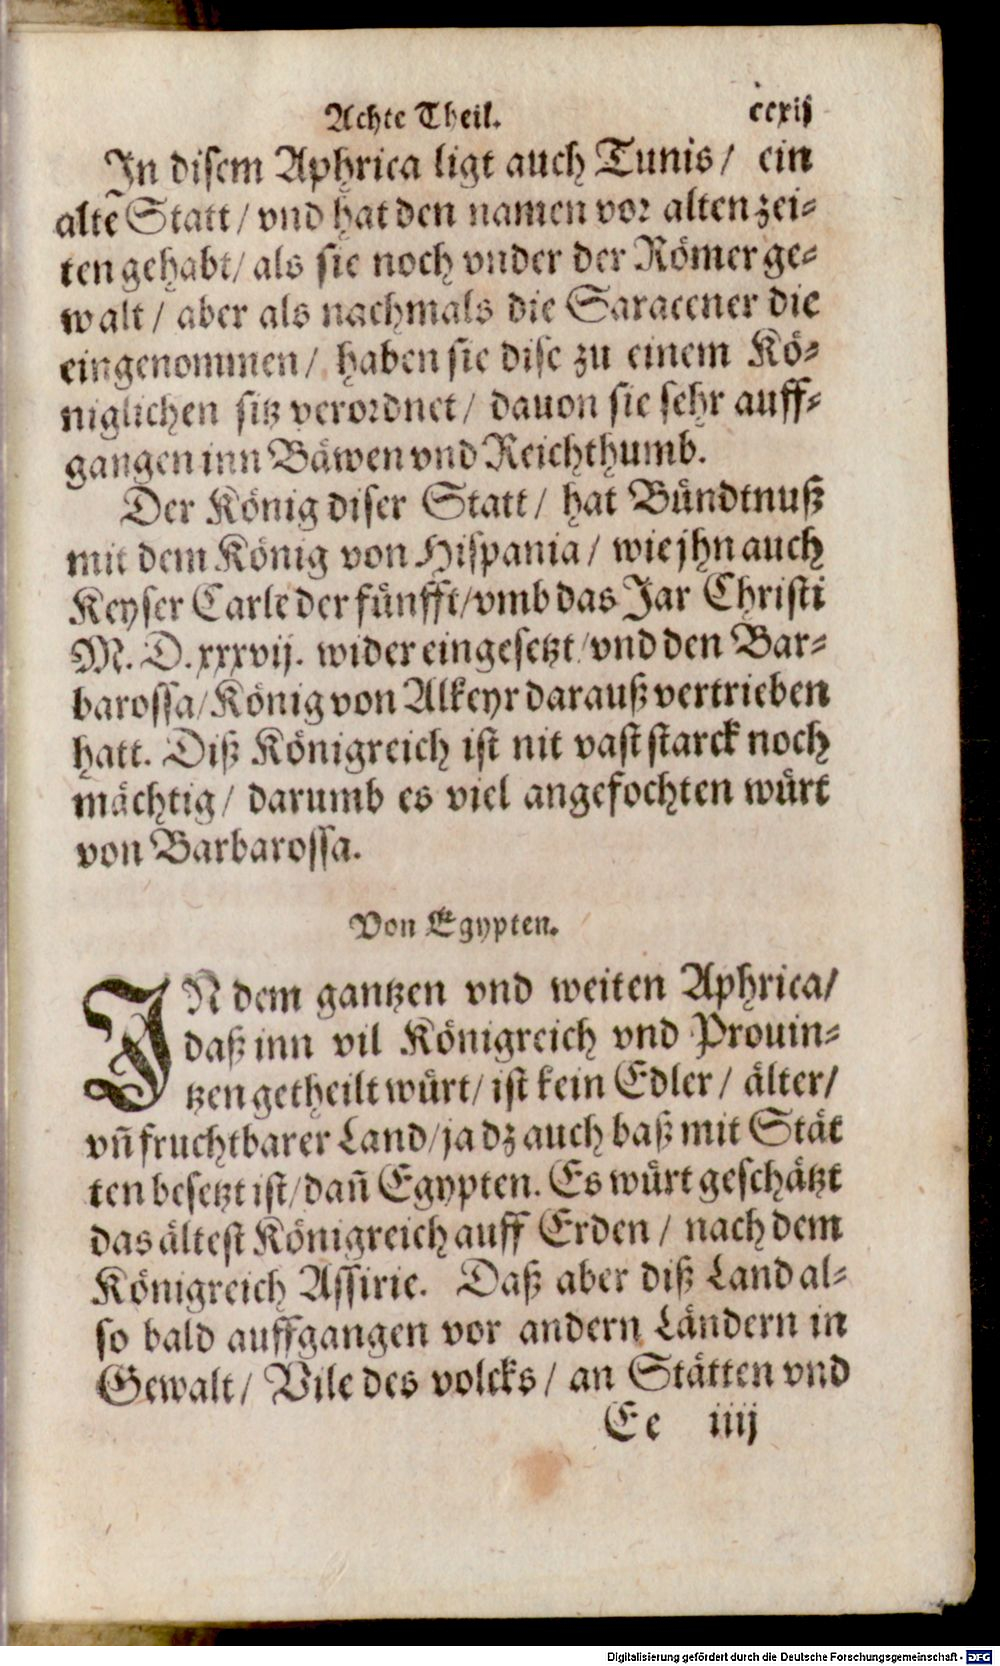 Achte Theil. ccxij
In disem Aphrica ligt auch Tunis/ ein
altẽ Statt/ vnd hat den namen vor alten zei-
ten gehabt/ als sie noch vnder der Römer ge-
walt/ aber als nachmals die Saracener die
eingenommen/ haben sie dise zu einem Kö-
niglichen sitz verordnet/ dauon sie sehr auff-
gangen inn Bäwen vnd Reichthumb.
Der König diser Statt/ hat Bündtnuß
mit dem König von Hispania/ wie jhn auch
Keyser Carle der fünfft/ vmb das Jar Christi
M. D. xxxvij. wider eingesetzt/ vnd den Bar-
barossa/ König von Alkeyr darauß vertrieben
hatt. Diß Königreich ist nit vast starck noch
mächtig/ darumb es viel angefochten würt
von Barbarossa.
Von Egypten.
IN dem gantzen vnd weiten Aphrica/
daß inn vil Königreich vnd Prouin-
tzen getheilt würt/ ist kein Edler/ älter/
vñ fruchtbarer Land/ ja dz auch baß mit Stät
ten besetzt ist/ dañ Egypten. Es würt geschätzt
das ältest Königreich auff Erden/ nach dem
Königreich Assirie. Daß aber diß Land al-
so bald auffgangen vor andern Ländern in
Gewalt/ Vile des volcks/ an Stätten vnd
Ee iiij
Digitalisierung gefördert durch die Deutsche Forschungsgemeinschaft - DFG